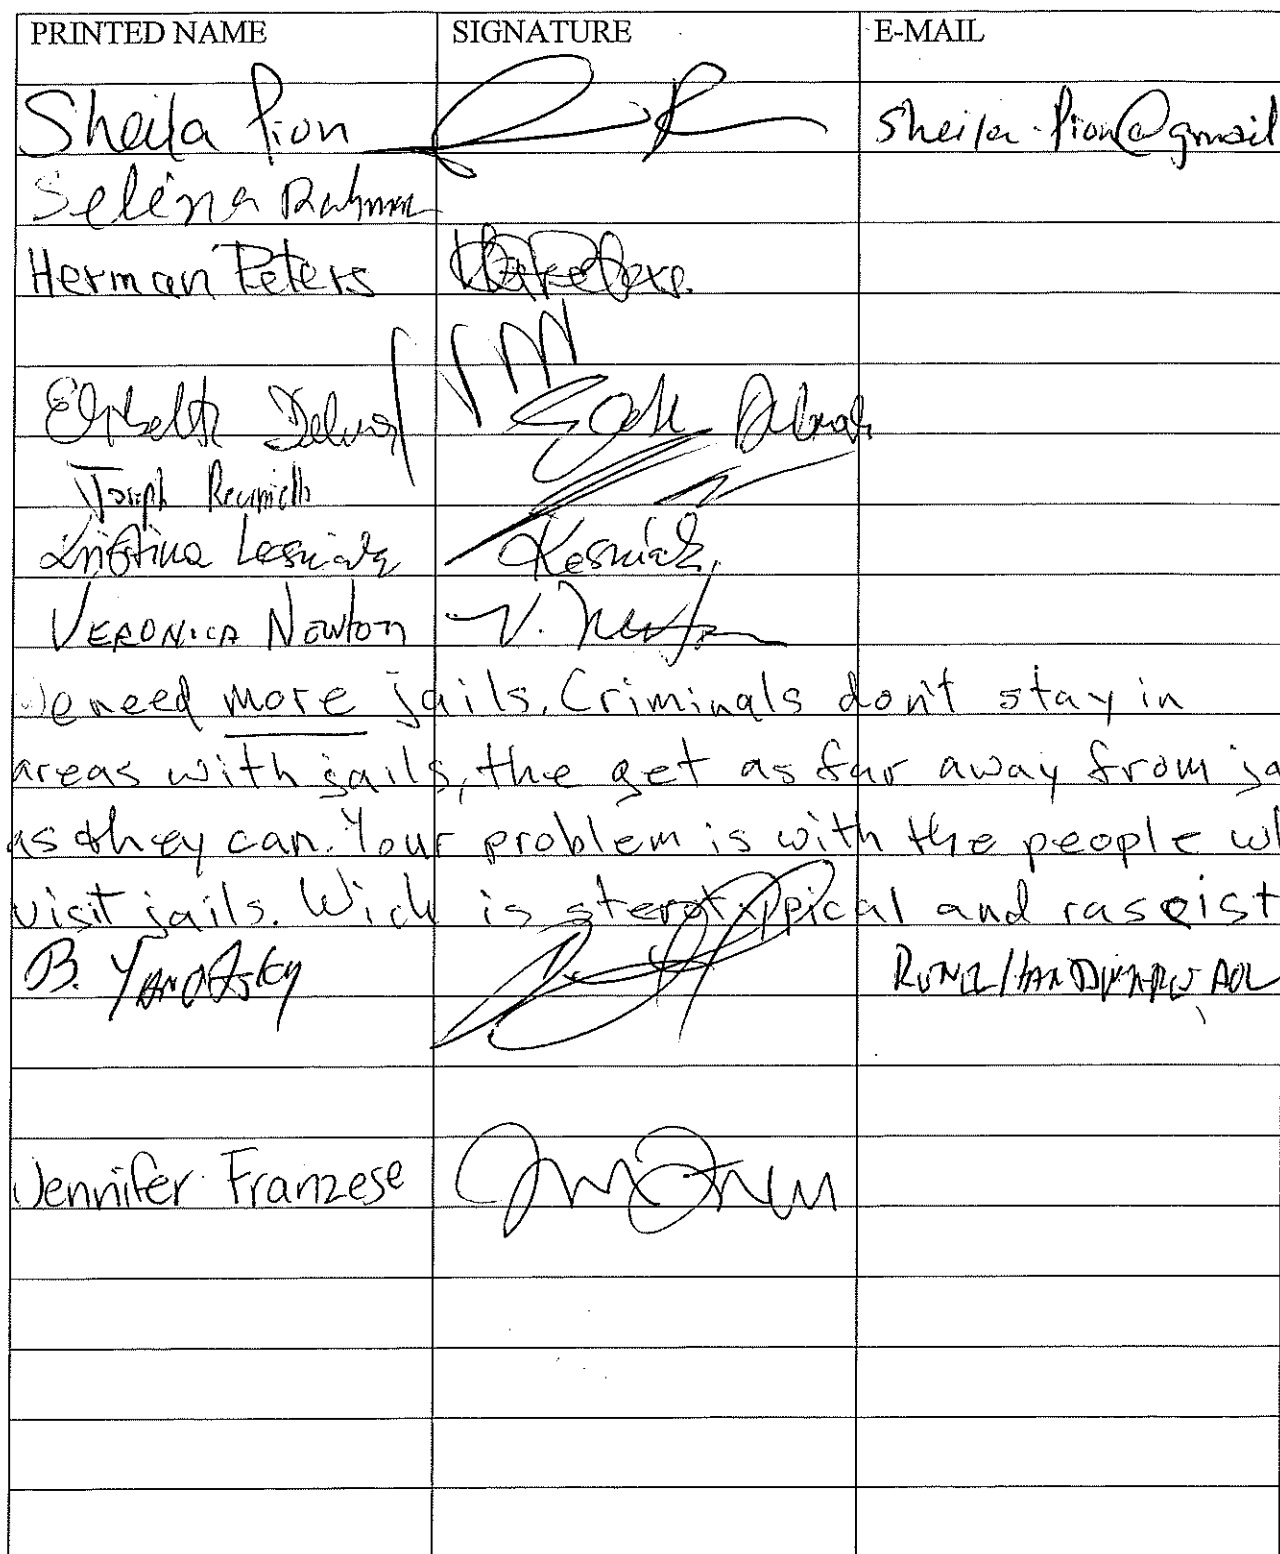 PRINTED NAME SIGNATURE E-MAIL
Sheila Pion sheila.pion@gmail
Selena Rahman
Herman Peters H Peters.
Joseph
Kristina Lesniak Lesniak
VERONICA NEWTON V. Newton
We need more jails. Criminals don't stay in
areas with jails, the get as far away from ja
as they can. Your problem is with the people wh
visit jails. Wich is sterotyppical and rascist
B. YANOFSKY
Jennifer Franzese